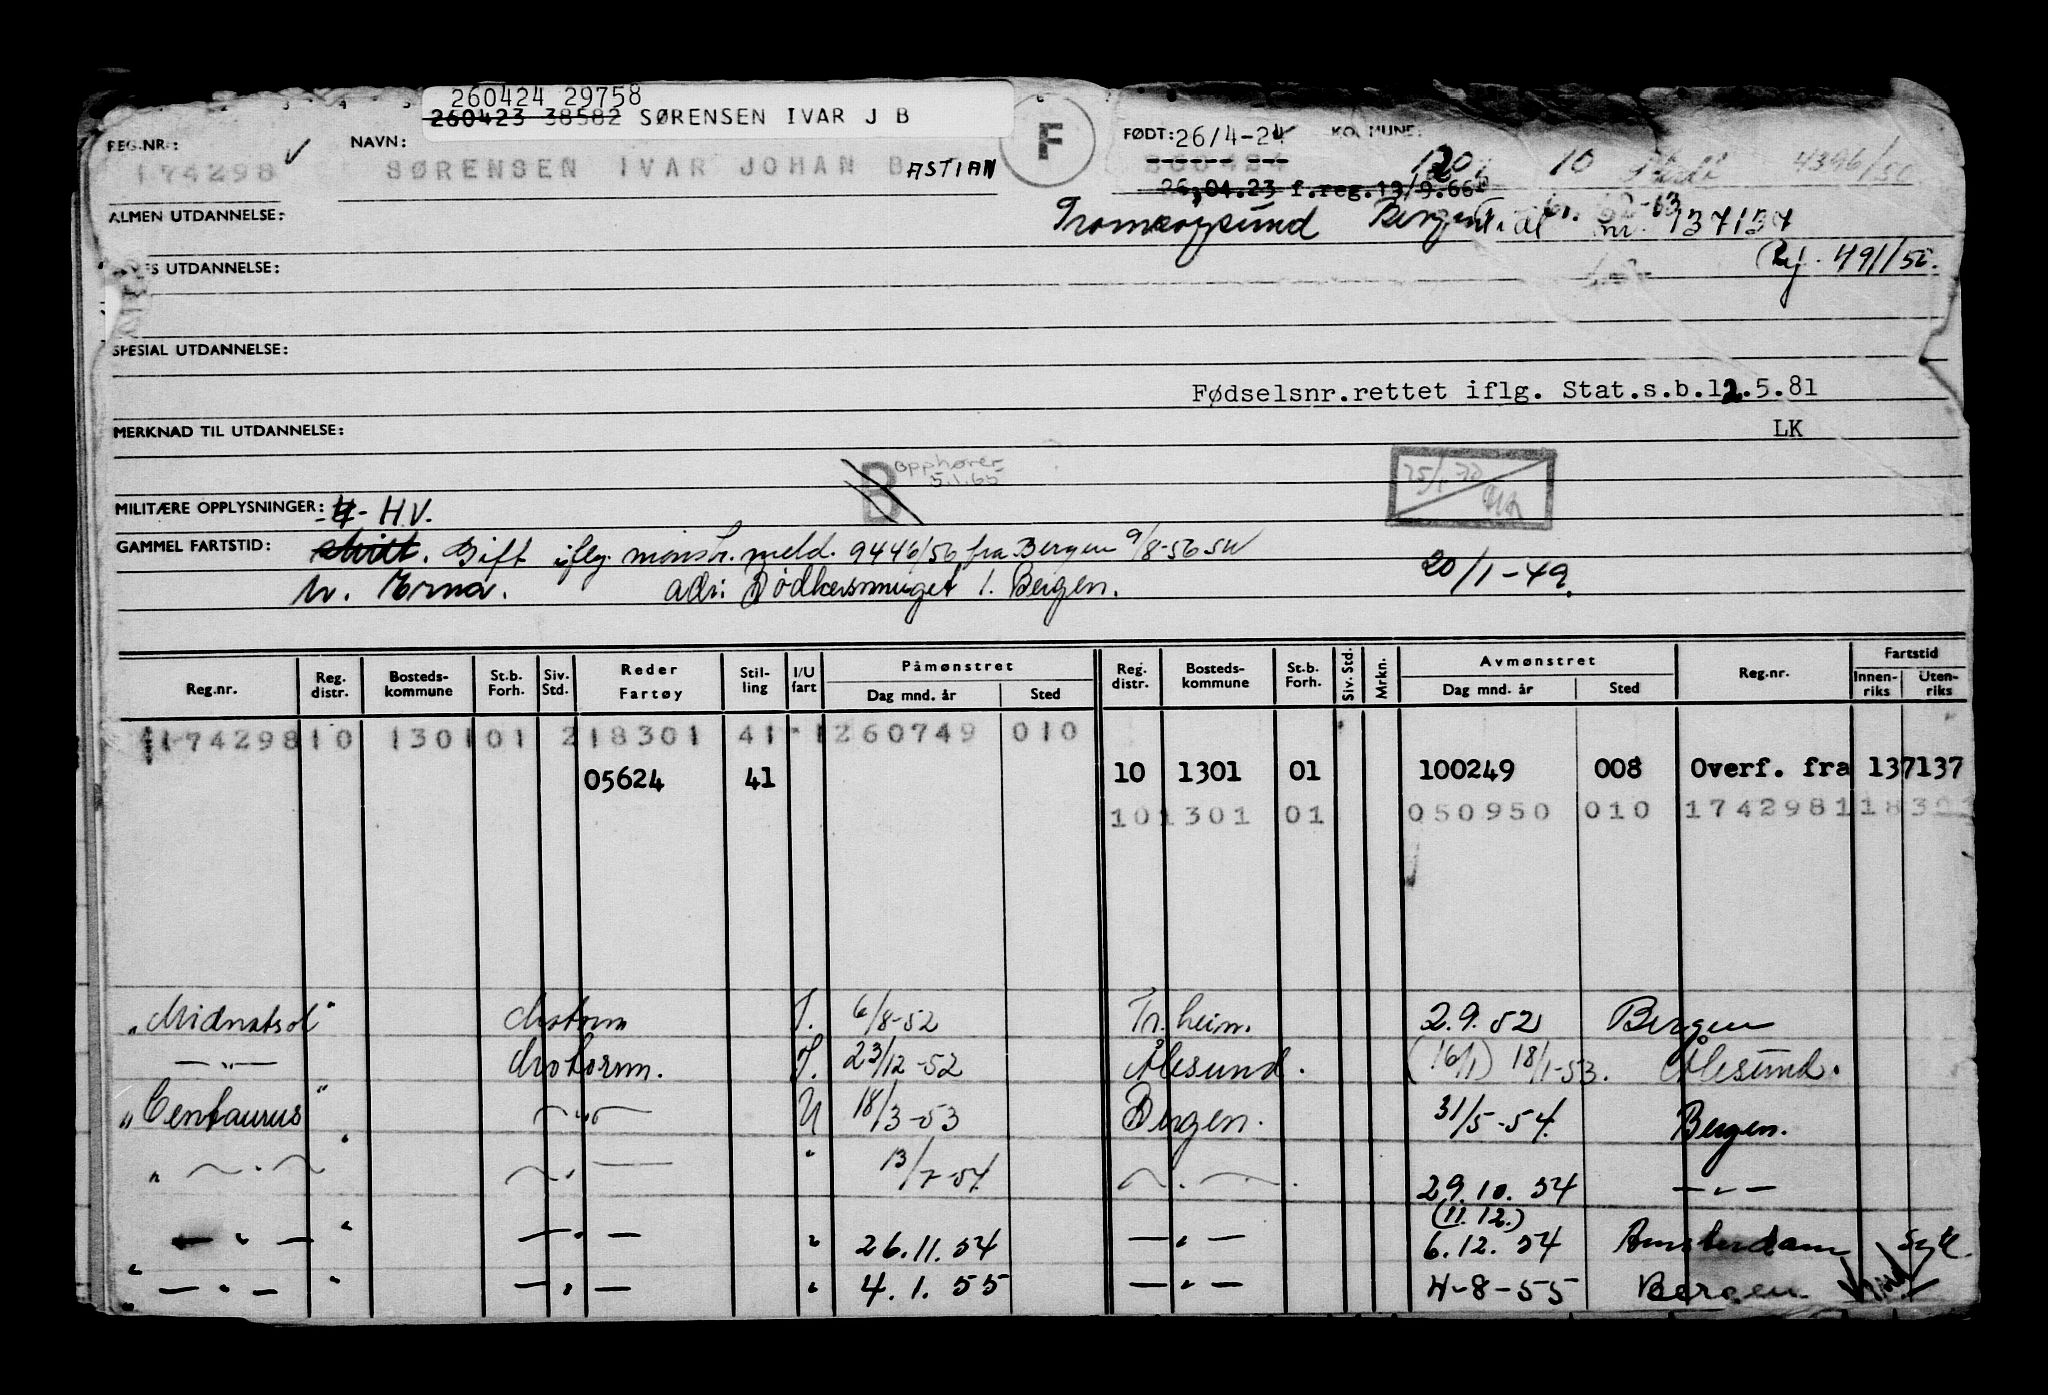 260424 29758
260423 38582 SØRENSEN IVAR J B
REG.NR.: 174298
NAVN: SØRENSEN IVAR JOHAN BASTIAN
F
FØDT: 26/4-24 KOMMUNE:
260424
10 4396/56
26,04.23 f.reg.19/9.66
ALMEN UTDANNELSE:
Tromsøysund Bergen nr. 137137
UTDANNELSE:
Rej. 491/56.
SPESIAL UTDANNELSE:
Fødselsnr.rettet iflg. Stat.s.b.12.5.81
MERKNAD TIL UTDANNELSE: LK
B opphører 5.1.65
MILITÆRE OPPLYSNINGER: -4- H.V.
GAMMEL FARTSTID: Gift iflg. mønstr. meld. 9446/56 fra Bergen 9/8-56 SW
20/1-49.
m. Erna. adr: Bødkersmuget 1. Bergen.
Reg.nr. Reg. distr. Bosteds-kommune St.b. Forh. Siv. Std. Reder Fartøy Stil-ling I/U fart Påmønstret Dag mnd. år Sted Reg. distr. Bosteds-kommune St.b. Forh. Siv. Std. Mrkn. Avmønstret Dag mnd. år Sted Reg.nr. Fartstid Innen-riks Uten-riks
174298 10 1301 01 2 18301 41 1 260749 010
05624 41 10 1301 01 100249 008 Overf. fra 137137
10 1301 01 050950 010 174298 1 18301
"Midnatsol" Motorm I. 6/8-52 Tr.heim. 2.9.52 Bergen
—"— Motorm. I. 23/12-52 Ålesund. (16/1) 18/1-53. Ålesund.
"Centaurus" —"— U 18/3-53 Bergen. 31/5-54. Bergen.
" —"— " —"— " 13/7-54 —"— 29.10.54 —"—
(11.12.)
—"— " —"— " 26.11.54 —"— 6.12.54 Amsterdam Syk
" —"— " —"— " 4.1.55 —"— 4-8-55 Bergen